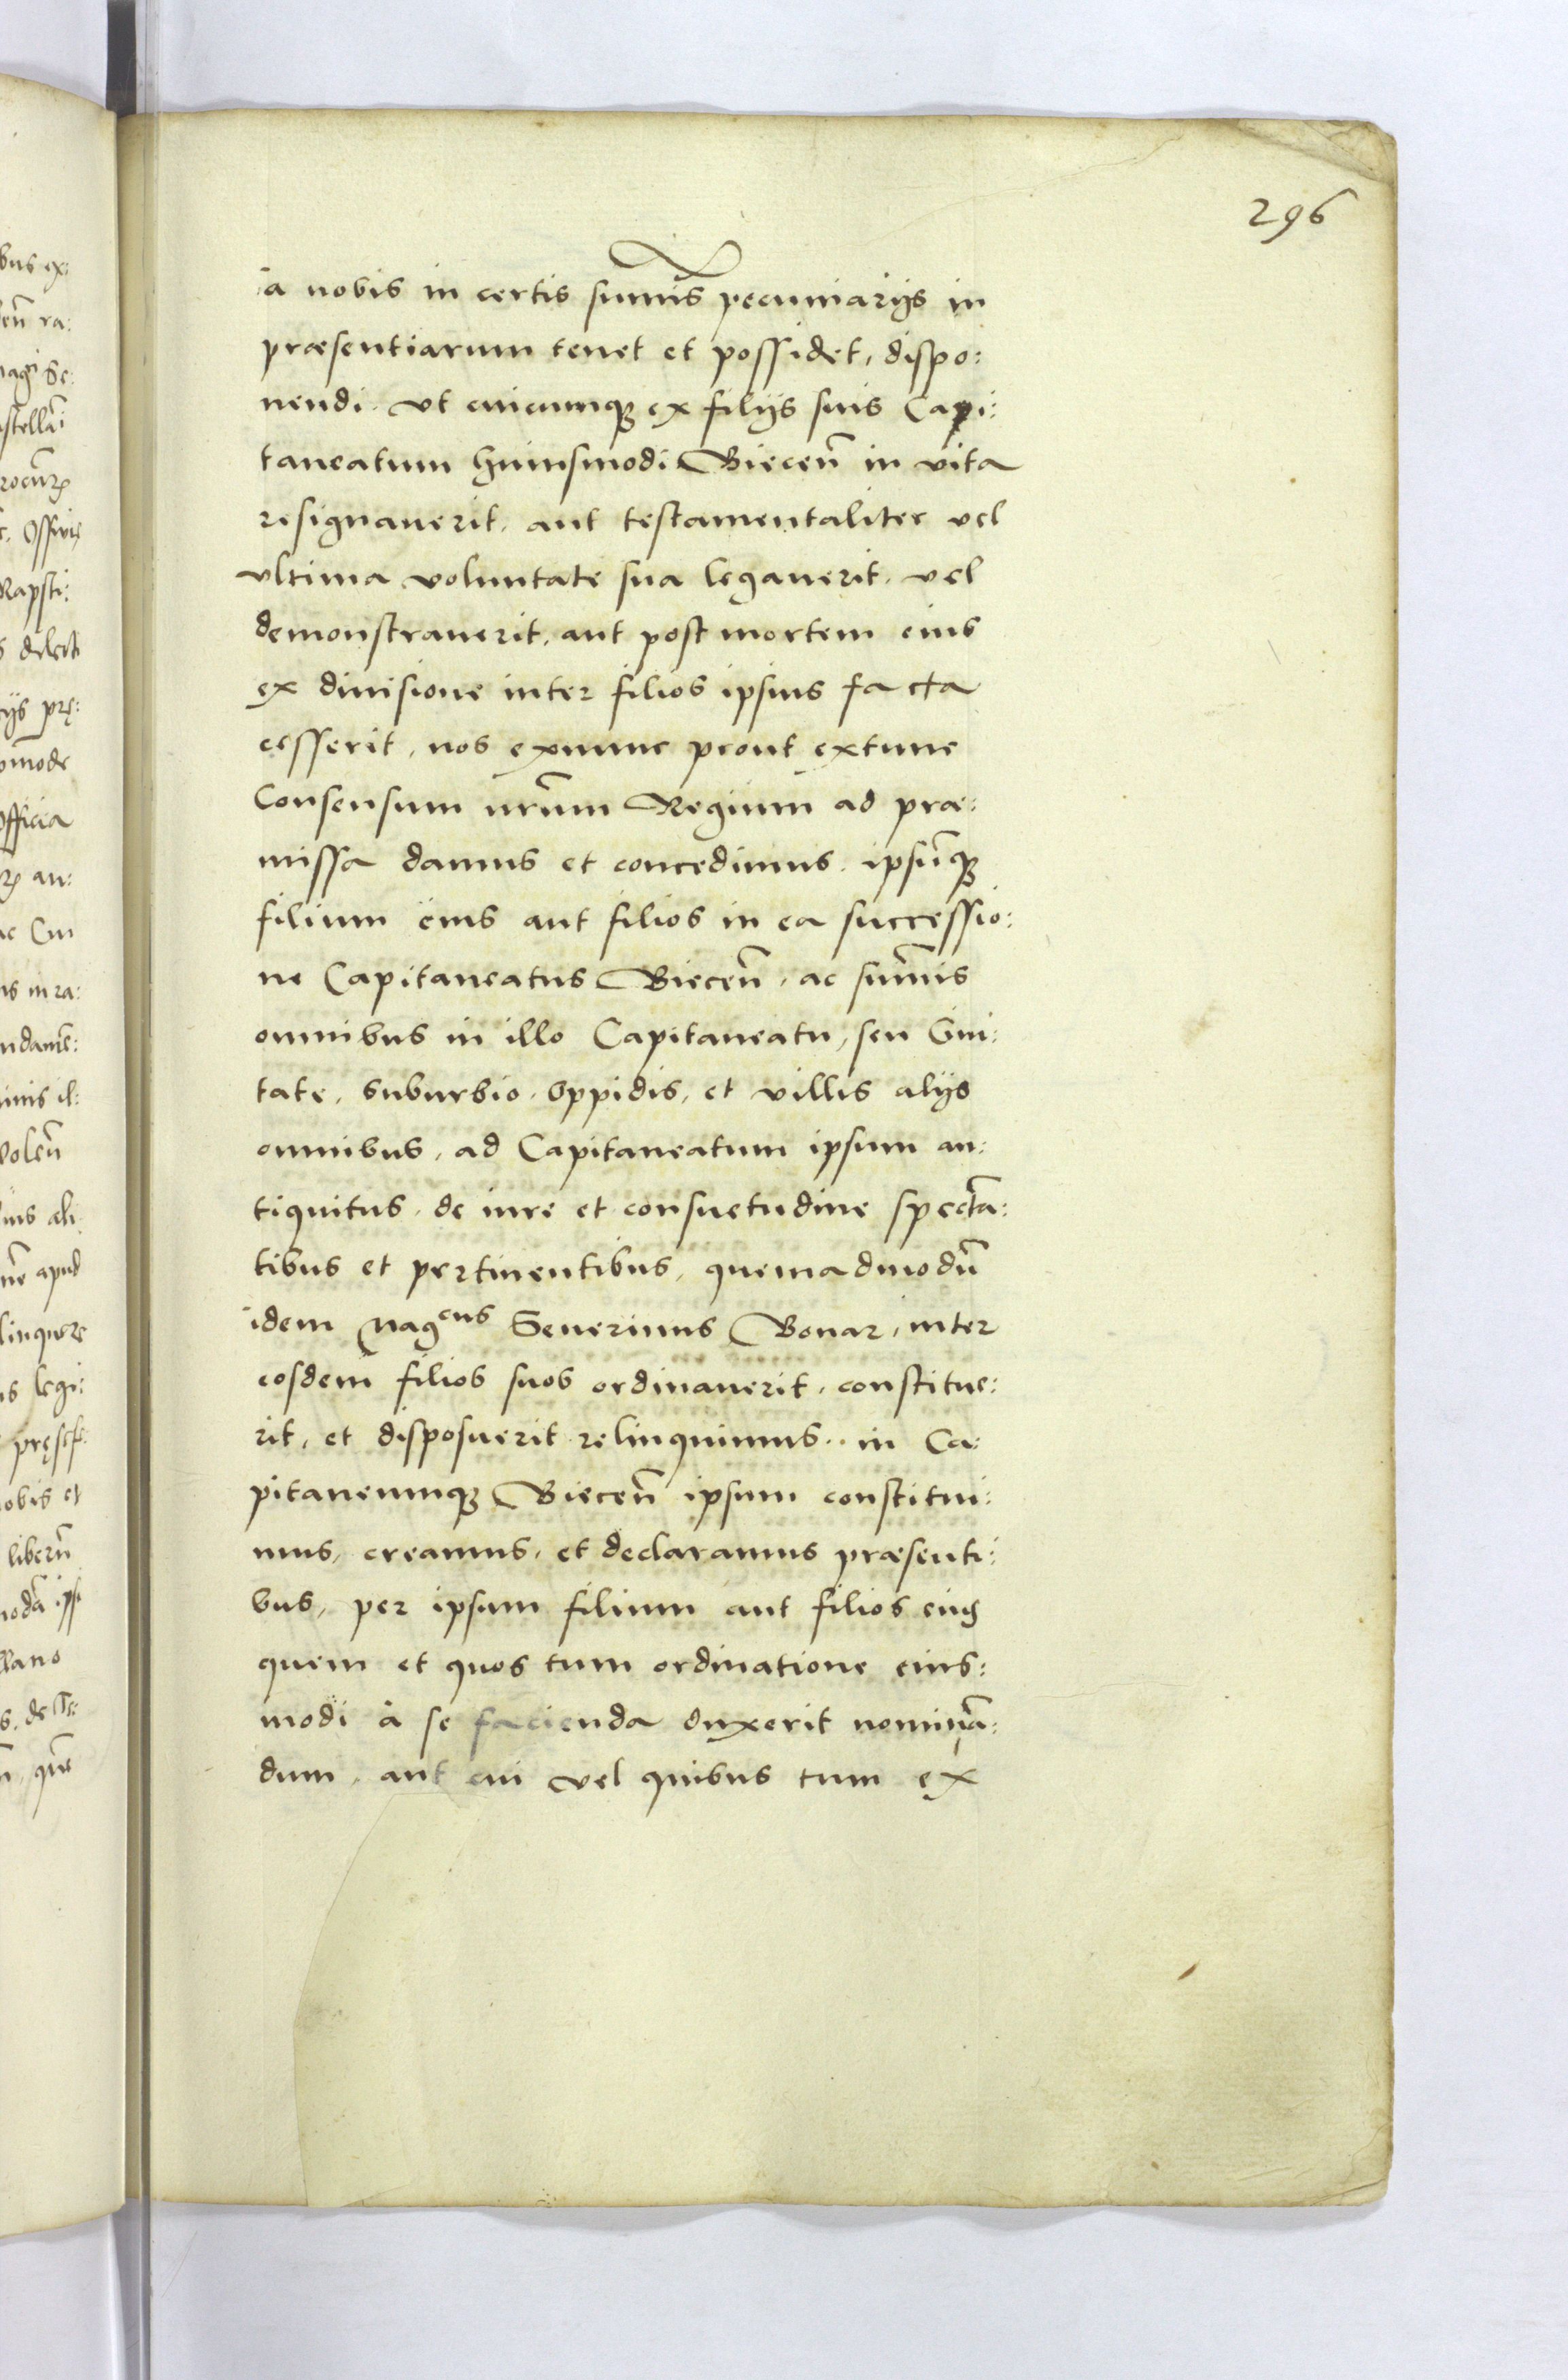 296
a nobis in certis sum̄is pecuniarijs in
præsentiarum tenet et possidet, dispo:
nendi. Vt cuicumqꝫ ex filijs suis Capi:
taneatum huiusmodi Biecen̄ in vita
resignauerit, aut testamentaliter vel
vltima voluntate sua legauerit, vel
demonstrauerit, aut post mortem eius
ex diuisione inter filios ipsius facta
cesserit, nos exnunc prout extunc
Consensum nr̄um Regium ad præ:
missa damus et concedimus. ipsum̄qꝫ
filium eius aut filios in ea successio:
ne Capitaneatus Biecen̄, ac sum̄is
omnibus in illo Capitaneatu, seu Ciui:
tate, suburbio, oppidis, et villis alijs
omnibus, ad Capitaneatum ipsum an:
tiquitus, de iure et consuetudine spectā:
tibus et pertinentibus, quemadmodū
idem Mag^cus Seuerinus Bonar, inter
eosdem filios suos ordinauerit, constitue:
rit, et disposuerit relinquimus. in Ca:
pitaneumqꝫ Biecen̄ ipsum constitui:
mus, creamus, et declaramus præsenti:
bus, per ipsum filium aut filios eius
quem et quos tum ordinatione eius:
modi à se facienda duxerit nominā:
dum, aut cui vel quibus tum ex
bus ex:
en̄ ra:
stellāi
Rapsti:
officia
volen̄
apud
linquere
legi:
obis et
liberū
llano